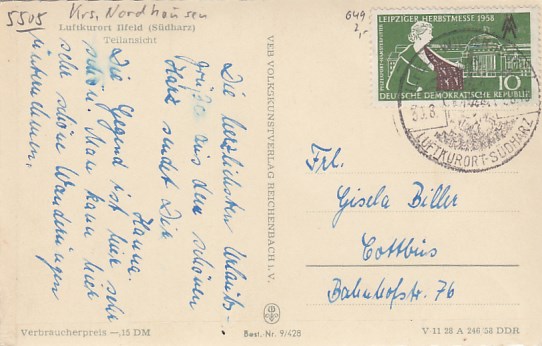 5505 Krs. Nordhausen
Luftkurort Ilfeld (Südharz)
Teilansicht
Die herzlichsten Urlaubs-
grüße aus dem schönen
Harz sendet Dir
Hanna.
Die Gegend ist hier sehr
schön. Man kann hier
sehr schöne Wanderungen
unternehmen.
VEB VOLKSKUNSTVERLAG REICHENBACH i. V.
649
2,-
LEIPZIGER HERBSTMESSE 1958
10
DEUTSCHE DEMOKRATISCHE REPUBLIK
LUFTKURORT-SÜDHARZ
Frl.
Gisela Biller
Cottbus
Bahnhofstr. 76
Verbraucherpreis —,15 DM
Best.-Nr. 9/428
V 11 28 A 246/58 DDR